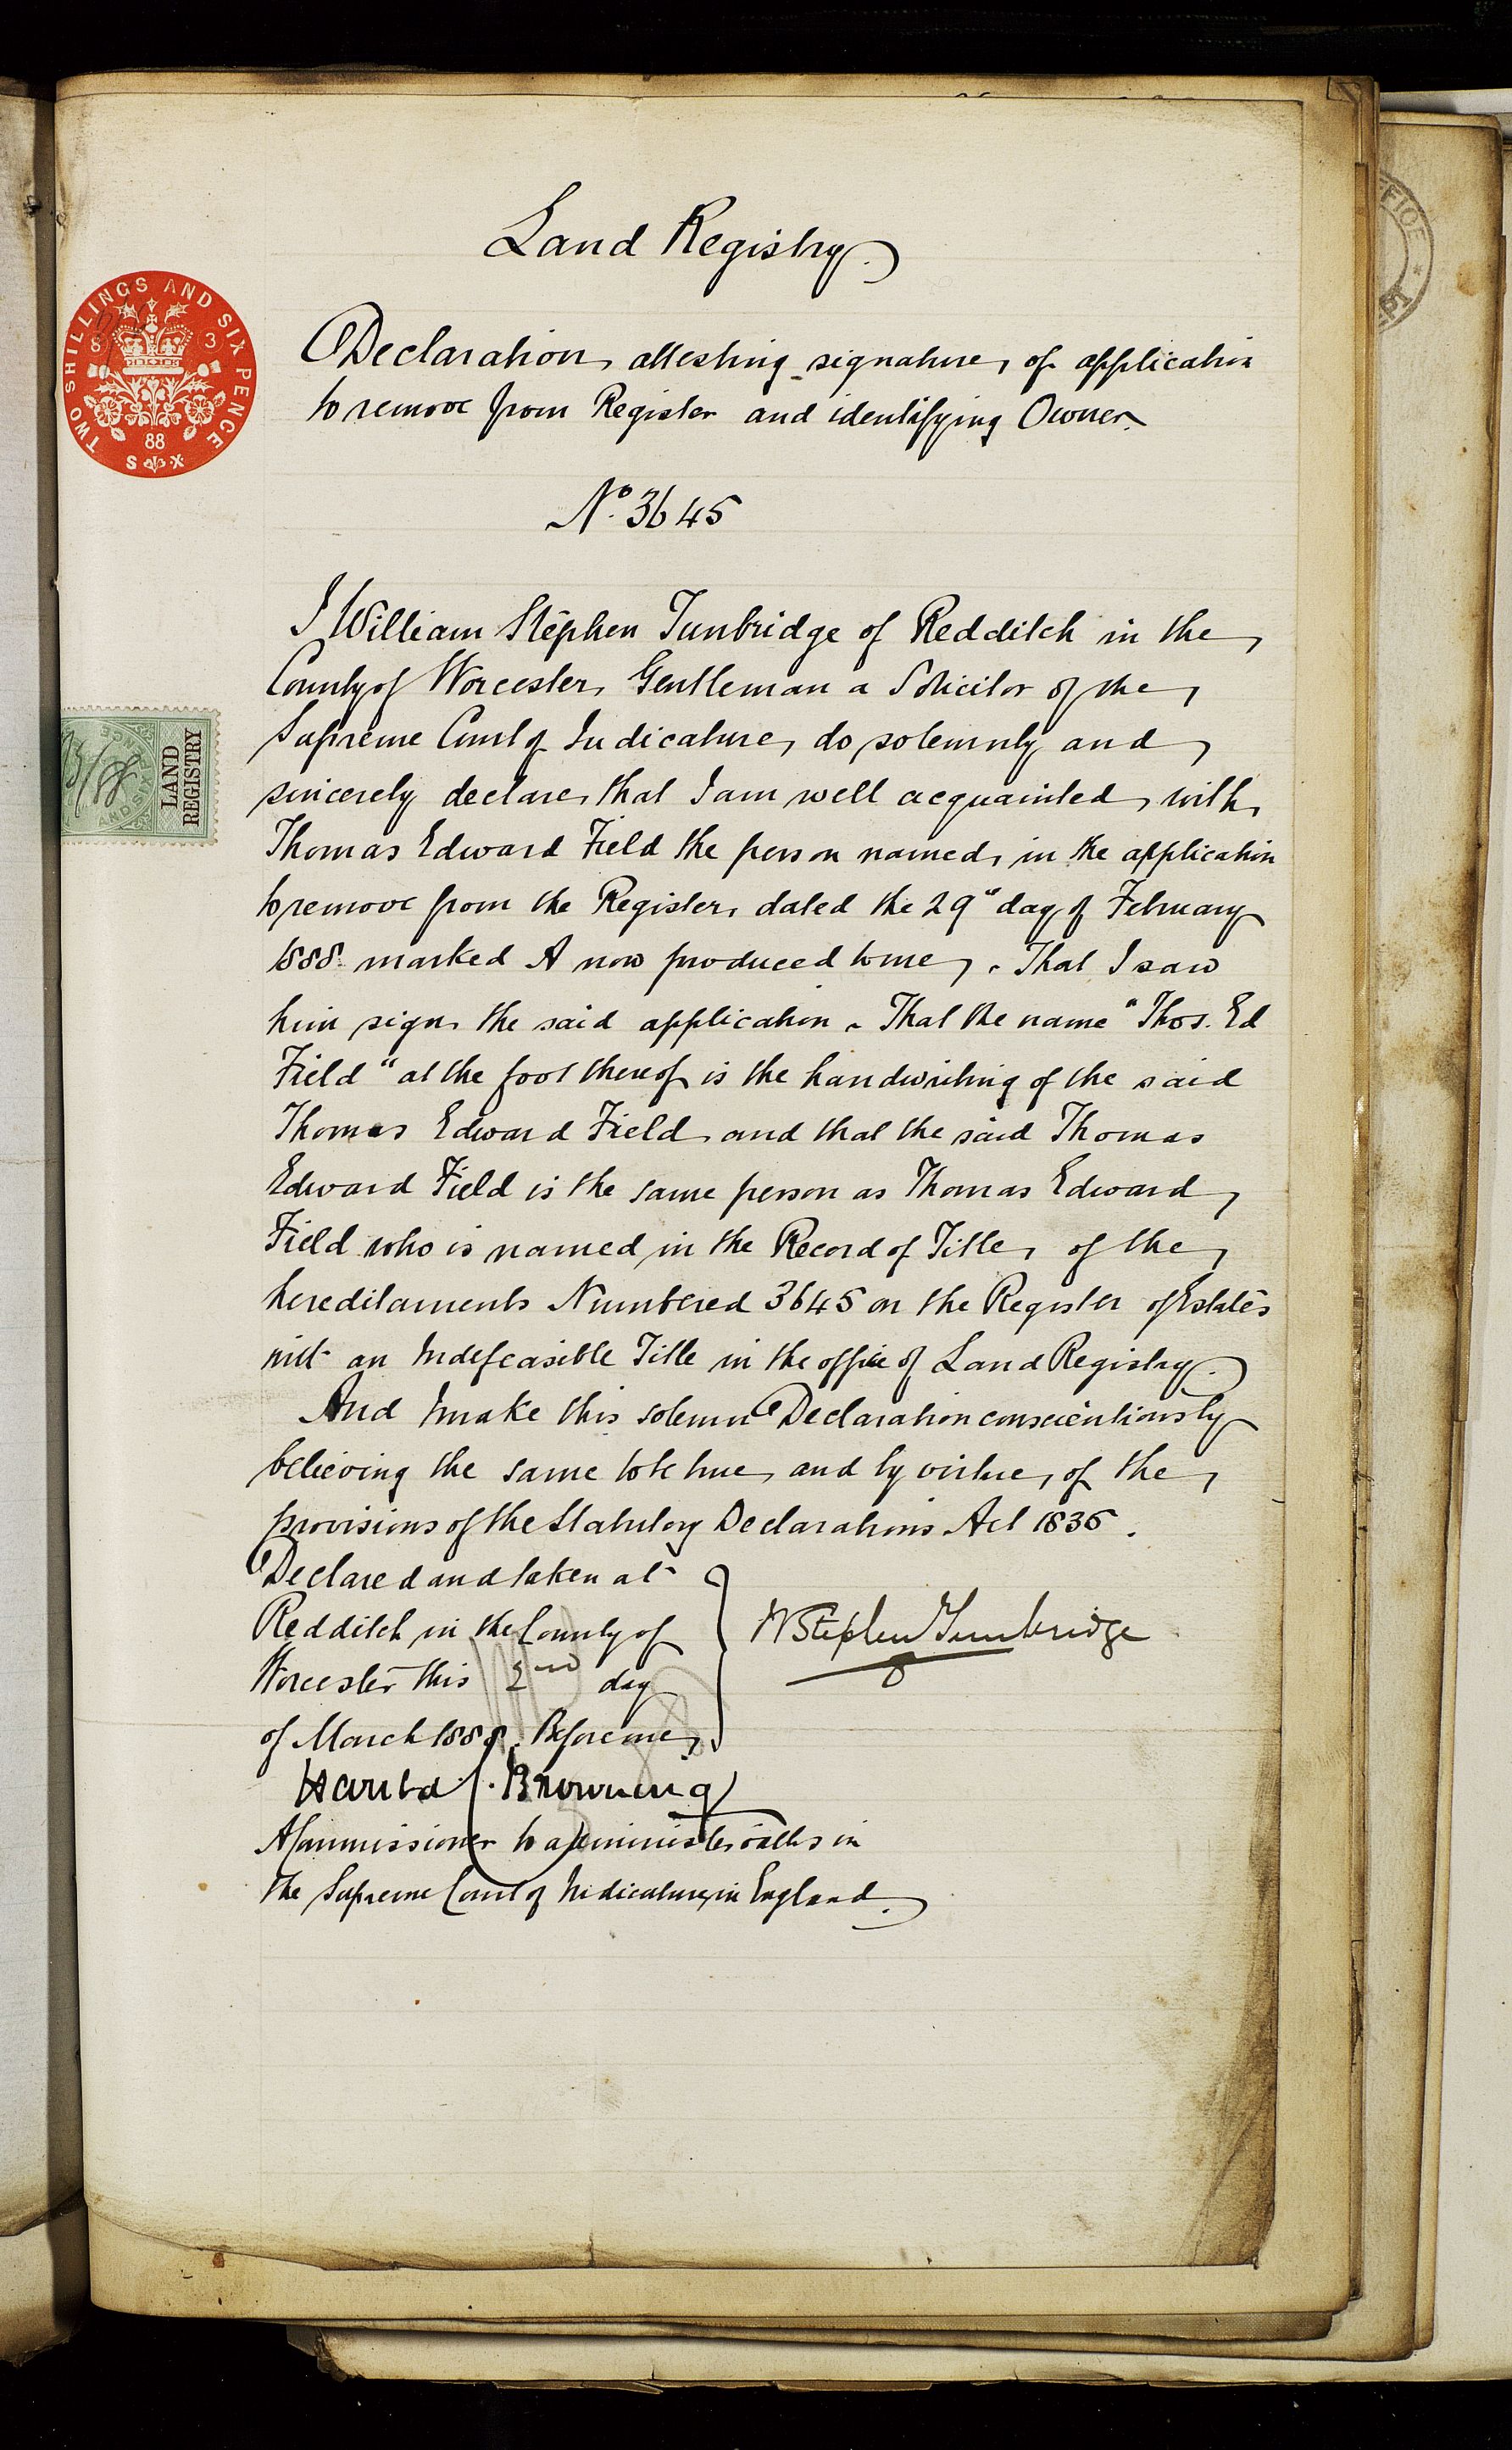 Land Registry.
TWO SHILLINGS AND SIX PENCE
8 3
88
S X
Declaration attesting signature of application
to remove from Register and identifying Owner.
No. 3645
LAND
REGISTRY
I William Stephen Tunbridge of Redditch in the
County of Worcester Gentleman a Solicitor of the
Supreme Court of Judicature do solemnly and
sincerely declare that I am well acquainted with
Thomas Edward Field the person named in the application
to remove from the Register dated the 29" day of February
1888 marked A now produced to me, - That I saw
him sign the said application - That the name "Thos. Ed
Field" at the foot thereof is the handwriting of the said
Thomas Edward Field and that the said Thomas
Edward Field is the same person as Thomas Edward
Field who is named in the Record of Title of the
hereditaments Numbered 3645 on the Register of Estates
with an Indefeasible Title in the office of Land Registry.
And I make this solemn Declaration conscientiously
believing the same to be true and by virtue of the
provisions of the Statutory Declarations Act 1835.
Declared and taken at
Redditch in the County of
Worcester this 2nd day
of March 1888. Before me,
W Stephen Tunbridge
Harold Browning
A Commissioner to administer oaths in
the Supreme Court of Judicature in England.